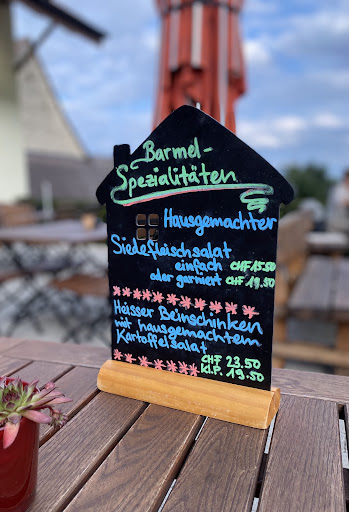 Barmel-
Spezialitäten
Hausgemachter
Siedefleischsalat
einfach CHF 15.50
oder garniert CHF 19.50
Heisser Beinschinken
mit hausgemachtem
Kartoffelsalat
CHF 23.50
kl.P. 19.50